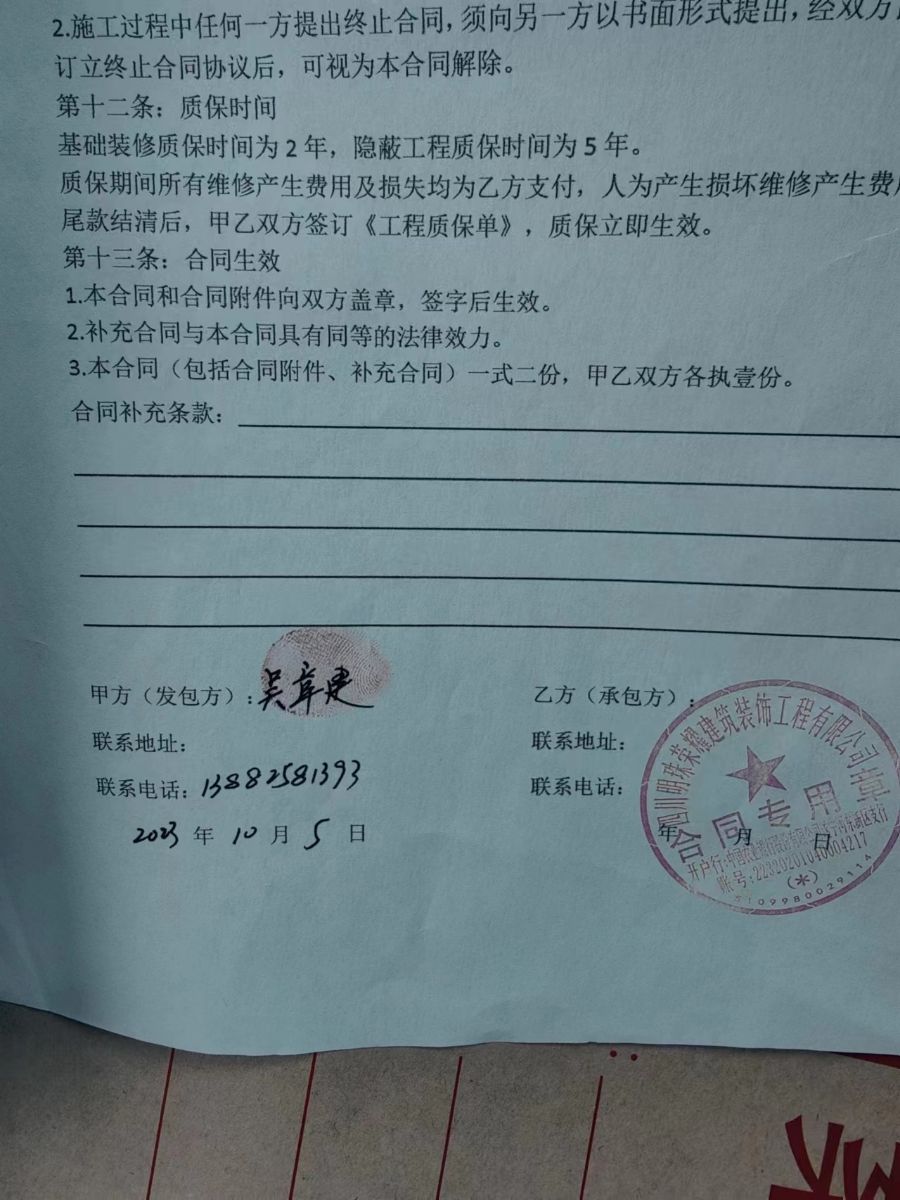 2.施工过程中任何一方提出终止合同，须向另一方以书面形式提出，经双方
订立终止合同协议后，可视为本合同解除。
第十二条：质保时间
基础装修质保时间为 2 年，隐蔽工程质保时间为 5 年。
质保期间所有维修产生费用及损失均为乙方支付，人为产生损坏维修产生费
尾款结清后，甲乙双方签订《工程质保单》，质保立即生效。
第十三条：合同生效
1.本合同和合同附件向双方盖章，签字后生效。
2.补充合同与本合同具有同等的法律效力。
3.本合同（包括合同附件、补充合同）一式二份，甲乙双方各执壹份。
合同补充条款：
甲方（发包方）：吴章建
联系地址：
联系电话：13882581393
2023 年 10 月 5 日
乙方（承包方）：
联系地址：
联系电话：
年 月 日
四川明珠荣耀建筑装饰工程有限公司
合同专用章
开户行:中国农业银行股份有限公司
账号:22320201040004217
(*)
5109980029114